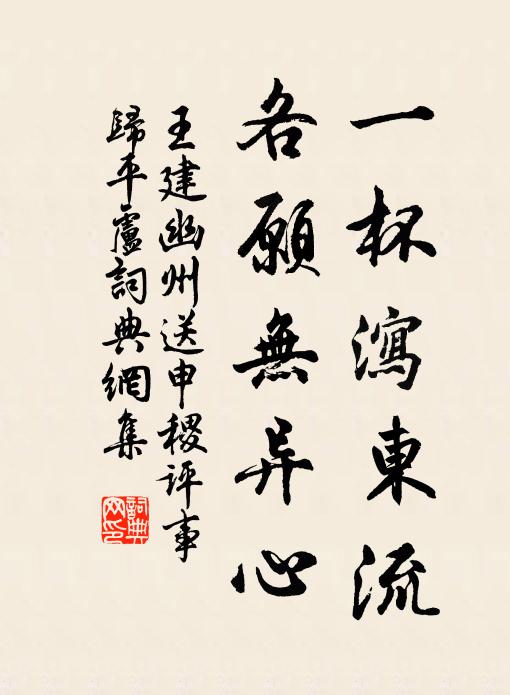 一杯瀉東流
各願無异心
王建幽州送申稷評事
歸平盧詞典網集
詞典網印